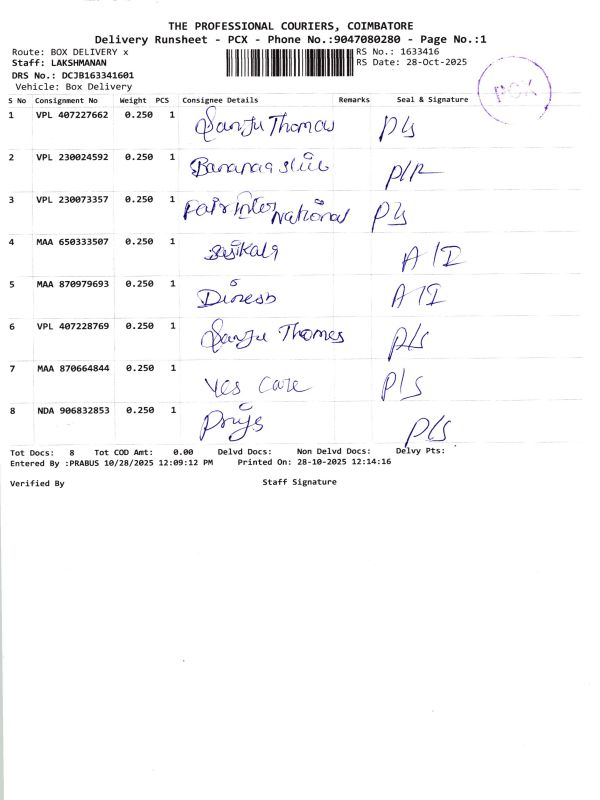 THE PROFESSIONAL COURIERS, COIMBATORE
Delivery Runsheet - PCX - Phone No.:9047080280 - Page No.:1
Route: BOX DELIVERY x RS No.: 1633416
Staff: LAKSHMANAN RS Date: 28-Oct-2025
DRS No.: DCJB163341601
Vehicle: Box Delivery
PCX
S No Consignment No Weight PCS Consignee Details Remarks Seal & Signature
1 VPL 407227662 0.250 1 Sanju Thomas P/S
2 VPL 230024592 0.250 1 Bananas P/R
3 VPL 230073357 0.250 1 Fair International P/S
4 MAA 650333507 0.250 1 Sasikala A/I
5 MAA 870979693 0.250 1 Dinesh A/I
6 VPL 407228769 0.250 1 Sanju Thomas P/S
7 MAA 870664844 0.250 1 Yes Care P/S
8 NDA 906832853 0.250 1 P/S
Tot Docs: 8 Tot COD Amt: 0.00 Delvd Docs: Non Delvd Docs: Delvy Pts:
Entered By :PRABUS 10/28/2025 12:09:12 PM Printed On: 28-10-2025 12:14:16
Verified By Staff Signature